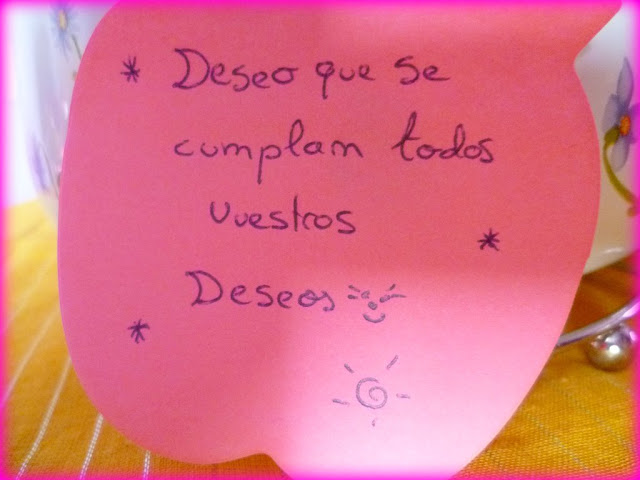 * Deseo que se
cumplam todos
vuestros
*
Deseos
*